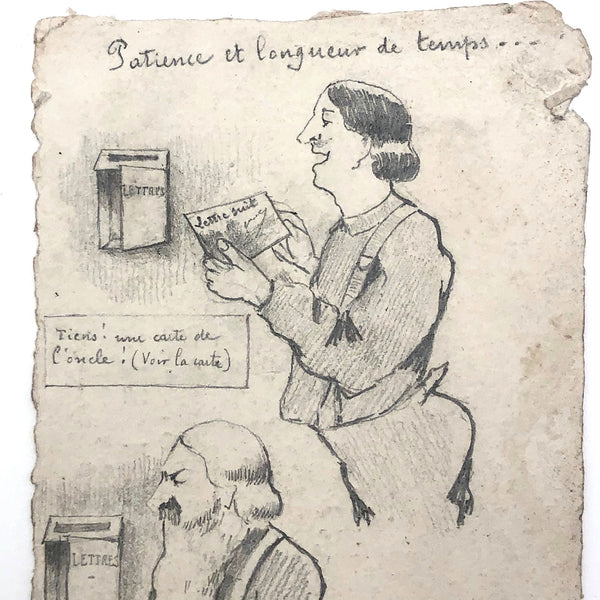 Patience et longueur de temps...
LETTRES
lettre suit
Tiens! une carte de
l'oncle! (Voir la carte)
LETTRES